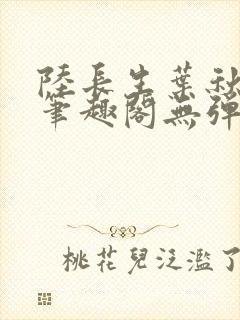 陸長生葉秋
筆趣閣無彈
桃花兒泛濫了